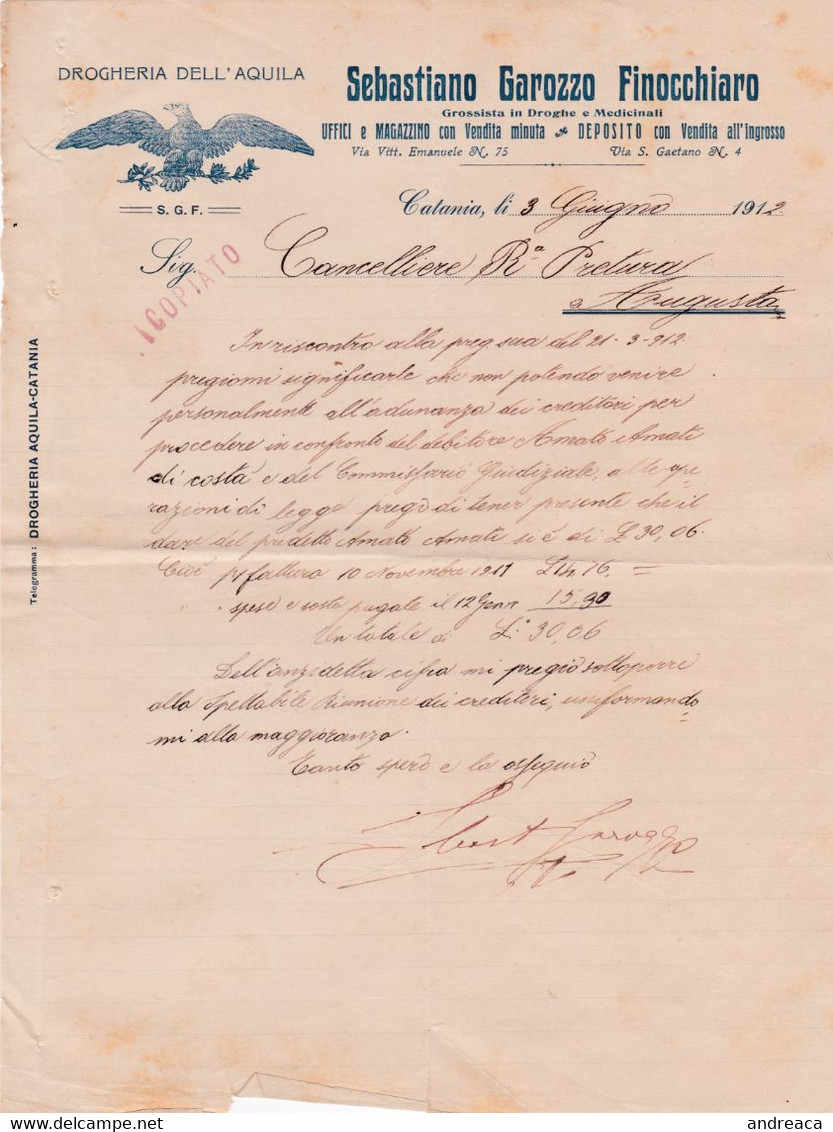 DROGHERIA DELL'AQUILA
S. G. F.
Sebastiano Garozzo Finocchiaro
Grossista in Droghe e Medicinali
UFFICI e MAGAZZINO con Vendita minuta DEPOSITO con Vendita all'ingrosso
Via Vitt. Emanuele N. 75 Via S. Gaetano N. 4
Catania, li 3 Giugno 1912
Sig. Cancelliere Ra Pretura
a Augusta
COPIATO
Telegramma: DROGHERIA AQUILA-CATANIA
In riscontro alla preg sua del 21-3-912
pregiomi significarle che non potendo venire
personalmente all'adunanza dei creditori per
procedere in confronto del debitore Amato Amati
di costà e del Commissario Giudiziale, alle ope=
razioni di legge pregò di tener presente che il
dare del predetto Amato Amati si è di £ 30,06.
Cioè pr fattura 10 Novembre 1911 £ 14,76, =
" spese e soste pagate il 12 Genn 15,30
Un totale di L. 30,06
Dell'anzidetta cifra mi pregiò sottoporre
alla Spettabile Riunione dei creditori, uniformando=
mi alla maggioranza.
Tanto sperò e la ossequiò
Sebast Garozzo
andreaca